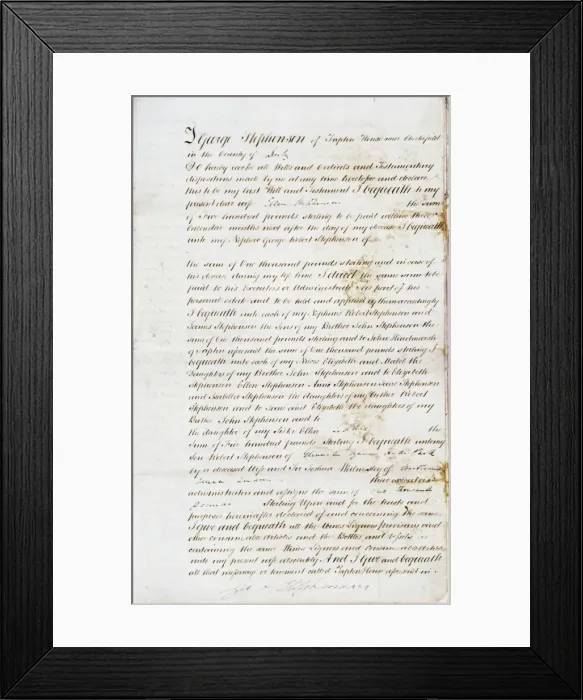 I George Stephenson of Tapton House near Chesterfield
in the County of Derby
Do hereby revoke all Wills and Codicils and Testamentary
dispositions made by me at any time heretofore and declare
this to be my last Will and Testament I bequeath to my
present dear wife Ellen Stephenson the sum
of Five hundred pounds sterling to be paid within three
calendar months next after the day of my decease I bequeath
unto my Nephew George Robert Stephenson of
the sum of One thousand pounds sterling and in case of
his decease during my life time I direct the same sum to be
paid to his Executors or Administrators as part of his
personal estate and to be held and applied by them accordingly
I bequeath unto each of my Nephews Robert Stephenson and
James Stephenson the Sons of my Brother John Stephenson the
sum of One thousand pounds sterling and to John Hindmarsh
of Tapton aforesaid the sum of One thousand pounds sterling I
bequeath unto each of my Nieces Elizabeth and Mabel the
daughters of my Brother John Stephenson and to Elizabeth
Stephenson Ellen Stephenson Anne Stephenson Jane Stephenson
and Isabella Stephenson the daughters of my Brother Robert
Stephenson and to Jane and Elizabeth the daughters of my
Brother John Stephenson and to
the daughter of my Sister Ellen the
Sum of Five hundred pounds Sterling I bequeath unto my
son Robert Stephenson of Hyde Park
by a deceased Wife and to Joshua Walmsley of
their executors
administrators and assigns the sum of Thousand
Pounds Sterling Upon and for the trusts and
purposes hereinafter declared of and concerning the same
I give and bequeath all the Wines Liquors provisions and
other consumable articles and the Bottles and vessels
containing the same Wines Liquors and
unto my present wife absolutely And I Give and bequeath
all that messuage or tenement called Tapton House aforesaid in
Geo Stephenson